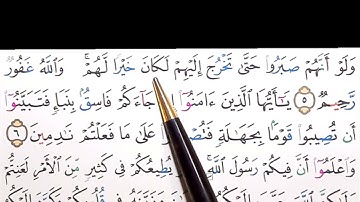 وَلَوْ أَنَّهُمْ صَبَرُوا۟ حَتَّىٰ تَخْرُجَ إِلَيْهِمْ لَكَانَ خَيْرًا لَّهُمْ ۚ وَٱللَّهُ غَفُورٌ
رَّحِيمٌ ٥ يَـٰٓأَيُّهَا ٱلَّذِينَ ءَامَنُوٓا۟ جَآءَكُمْ فَاسِقٌۢ بِنَبَإٍ فَتَبَيَّنُوٓا۟
أَن تُصِيبُوا۟ قَوْمًۢا بِجَهَـٰلَةٍ فَتُصْبِحُوا۟ عَلَىٰ مَا فَعَلْتُمْ نَـٰدِمِينَ ٦
وَٱعْلَمُوٓا۟ أَنَّ فِيكُمْ رَسُولَ ٱللَّهِ ۚ يُطِيعُكُمْ فِى كَثِيرٍ مِّنَ ٱلْأَمْرِ لَعَنِتُّمْ